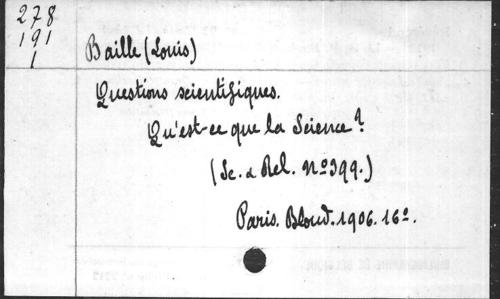 278
191
1
Baille (Louis)
Questions scientifiques.
Qu'est-ce que la Science?
(Sc. & Rel. Nº 399.)
Paris. Bloud. 1906. 16º.